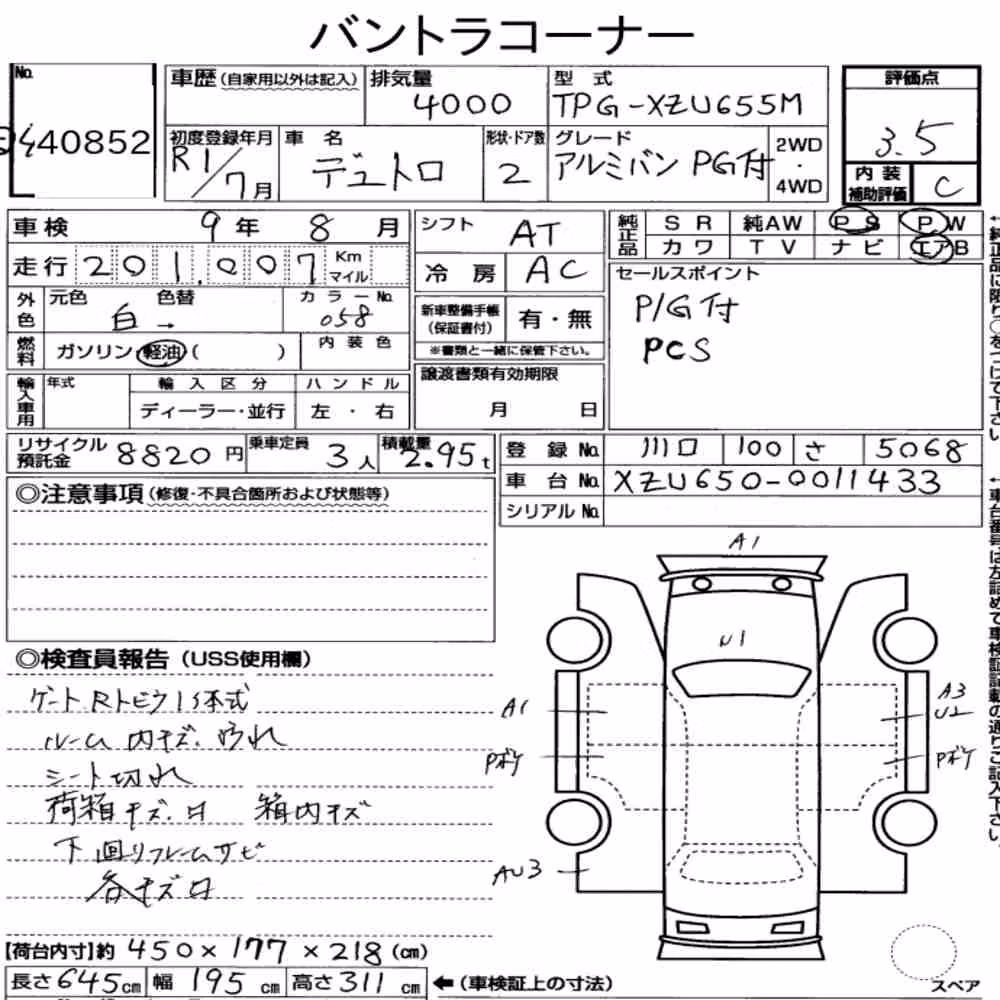 バントラコーナー
No. 440852
車歴(自家用以外は記入) 排気量 4000 型式 TPG-XZU655M
初度登録年月 R1/7月 車名 デュトロ 形状・ドア数 2 グレード アルミバン PG付 2WD・4WD
評価点 3.5
内装補助評価 C
車検 9年 8月
走行 201,007 Km マイル
外色 元色 白 色替 → カラーNo. 058
燃料 ガソリン・軽油( ) 内装色
輸入車用 年式 輸入区分 ディーラー・並行 ハンドル 左・右
シフト AT
冷房 AC
新車整備手帳(保証書付) 有・無
※書類と一緒に保管下さい。
譲渡書類有効期限 月 日
純正品 SR 純AW PS PW
カワ TV ナビ エアB
セールスポイント
P/G付
PCS
リサイクル預託金 8820円 乗車定員 3人 積載量 2.95t
登録No. 川口 100 さ 5068
車台No. XZU650-0011433
シリアルNo.
◎注意事項(修復・不具合箇所および状態等)
◎検査員報告(USS使用欄)
ルーム 内キズ.
シート切れ
荷箱キズ.凹 箱内キズ
下回りフレームサビ
各キズ凹
A1
U1
A1
A3
U2
Pボケ
Pボケ
AU3
スペア
【荷台内寸】約 450×177×218(cm)
長さ645cm 幅195cm 高さ311cm ←(車検証上の寸法)
↑純正品に限り○をつけて下さい。
↑車台番号は左詰めで車検証記載の通りご記入下さい。